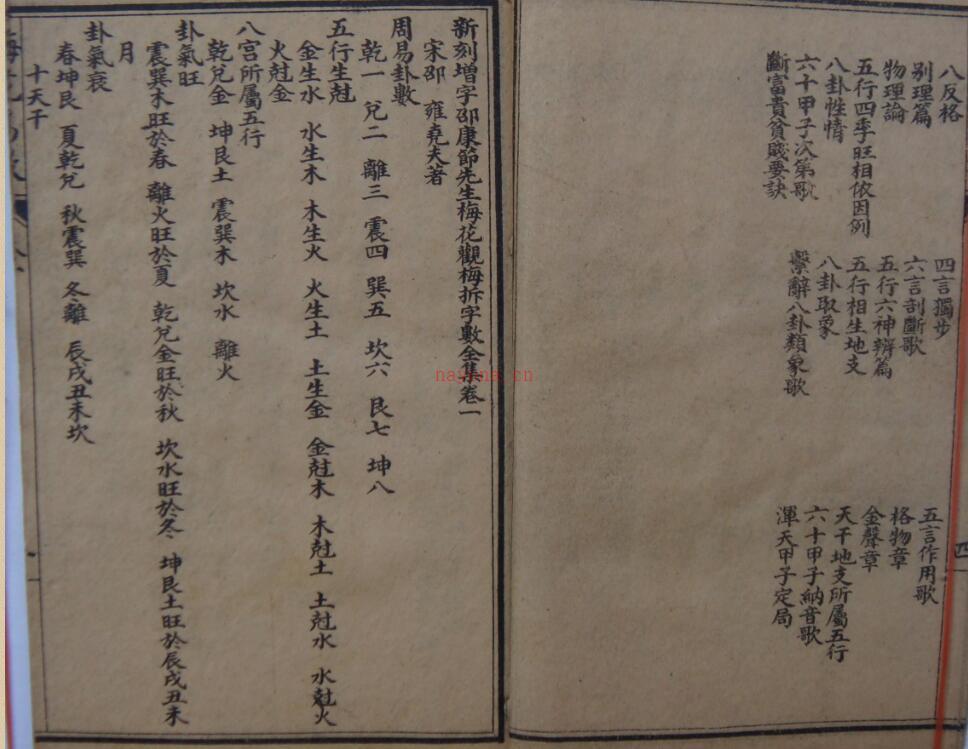 八反格　四言獨步　五言作用歌
别理篇　六言剖斷歌　格物章
物理論　五行六神辨篇　金聲章
五行四季旺相依因例　五行相生地支　天干地支所屬五行
八卦性情　八卦取象　六十甲子納音歌
六十甲子次第歌　繫辭八卦類象歌　渾天甲子定局
斷富貴貧賤要訣
四
新刻增字邵康節先生梅花觀梅拆字數全集卷一
宋邵　雍堯夫著
周易卦數
乾一　兌二　離三　震四　巽五　坎六　艮七　坤八
五行生尅
金生水　水生木　木生火　火生土　土生金　金尅木　木尅土　土尅水　水尅火
火尅金
八宮所屬五行
乾兌金　坤艮土　震巽木　坎水　離火
卦氣旺
震巽木旺於春　離火旺於夏　乾兌金旺於秋　坎水旺於冬　坤艮土旺於辰戌丑未
月
卦氣衰
春坤艮　夏乾兌　秋震巽　冬離　辰戌丑未坎
十天干
nayona.cn